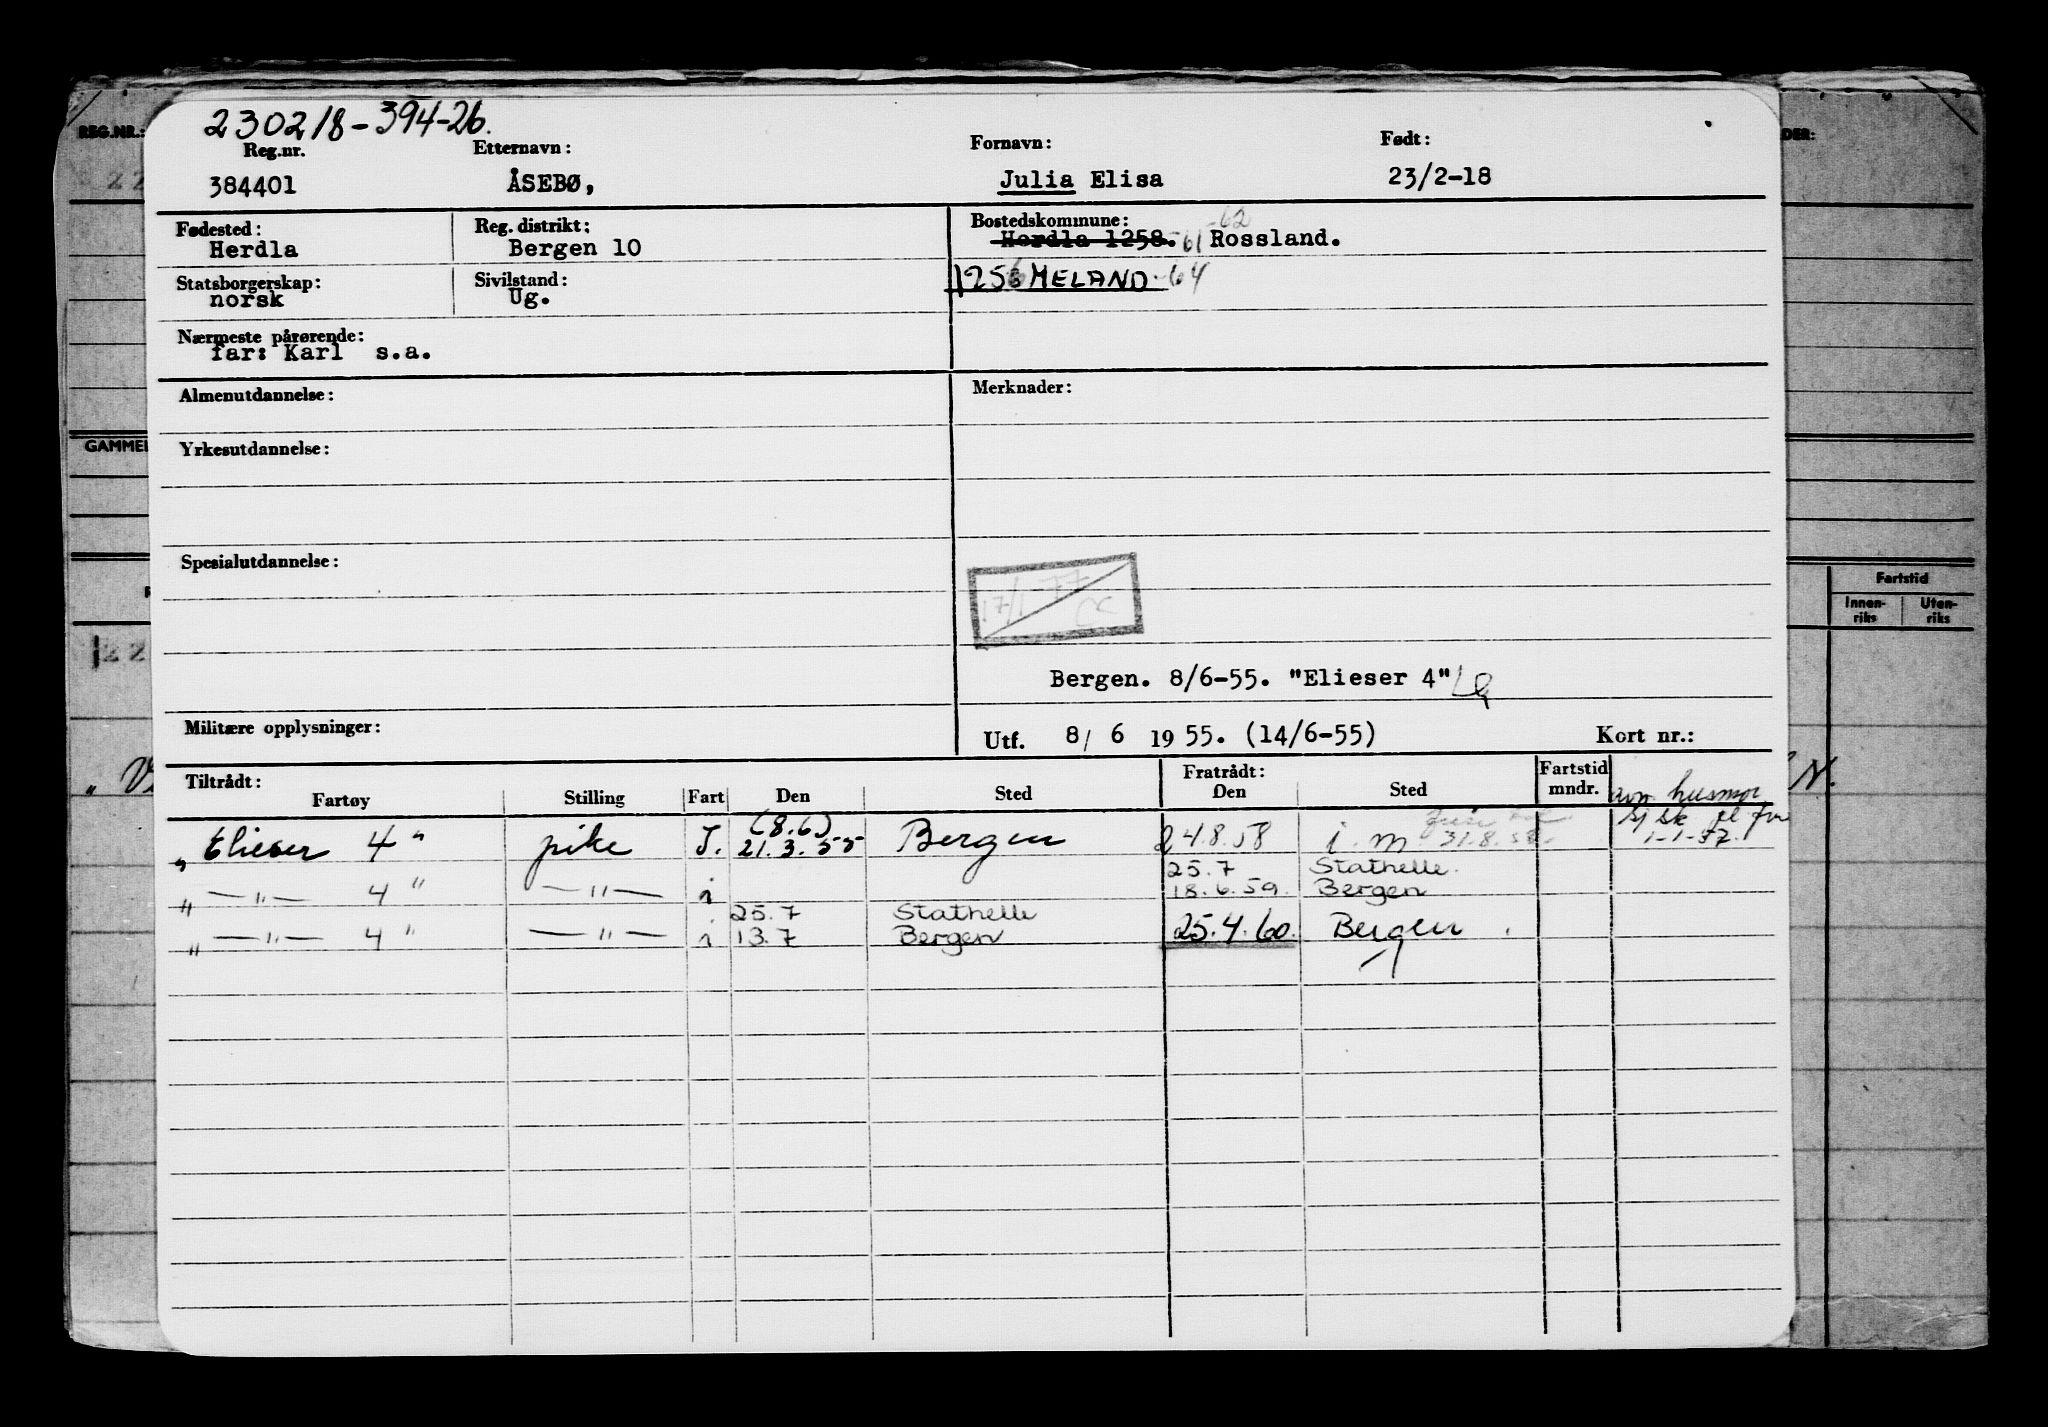 230218-394-26.
REG.NR.:
Reg.nr. Etternavn: Fornavn: Født:
384401 ÅSEBØ, Julia Elisa 23/2-18
Fødested: Reg. distrikt: Bostedskommune: -62
Herdla Bergen 10 Herdla 1258. -61 Rossland.
Statsborgerskap: Sivilstand: 1256 MELAND -64
norsk Ug.
Nærmeste pårørende:
far: Karl s.a.
Almenutdannelse: Merknader:
GAMMEL
Yrkesutdannelse:
Spesialutdannelse:
17/1-77
Fartstid
Innen-riks Uten-riks
Bergen. 8/6-55. "Elieser 4"
Militære opplysninger:
Utf. 8/ 6 1955. (14/6-55) Kort nr.:
Tiltrådt: Fratrådt: Fartstid mndr.
Fartøy Stilling Fart Den Sted Den Sted
husmor
(8.6)
"Elieser 4" pike I. 21.3.55 Bergen 24.8.58 i m 31.8.58 1-1-57.
25.7 Stathelle.
" —"— 4" —"— i 18.6.59. Bergen
25.7 Stathelle
" —"— 4" —"— i 13.7 Bergen 25.4.60. Bergen